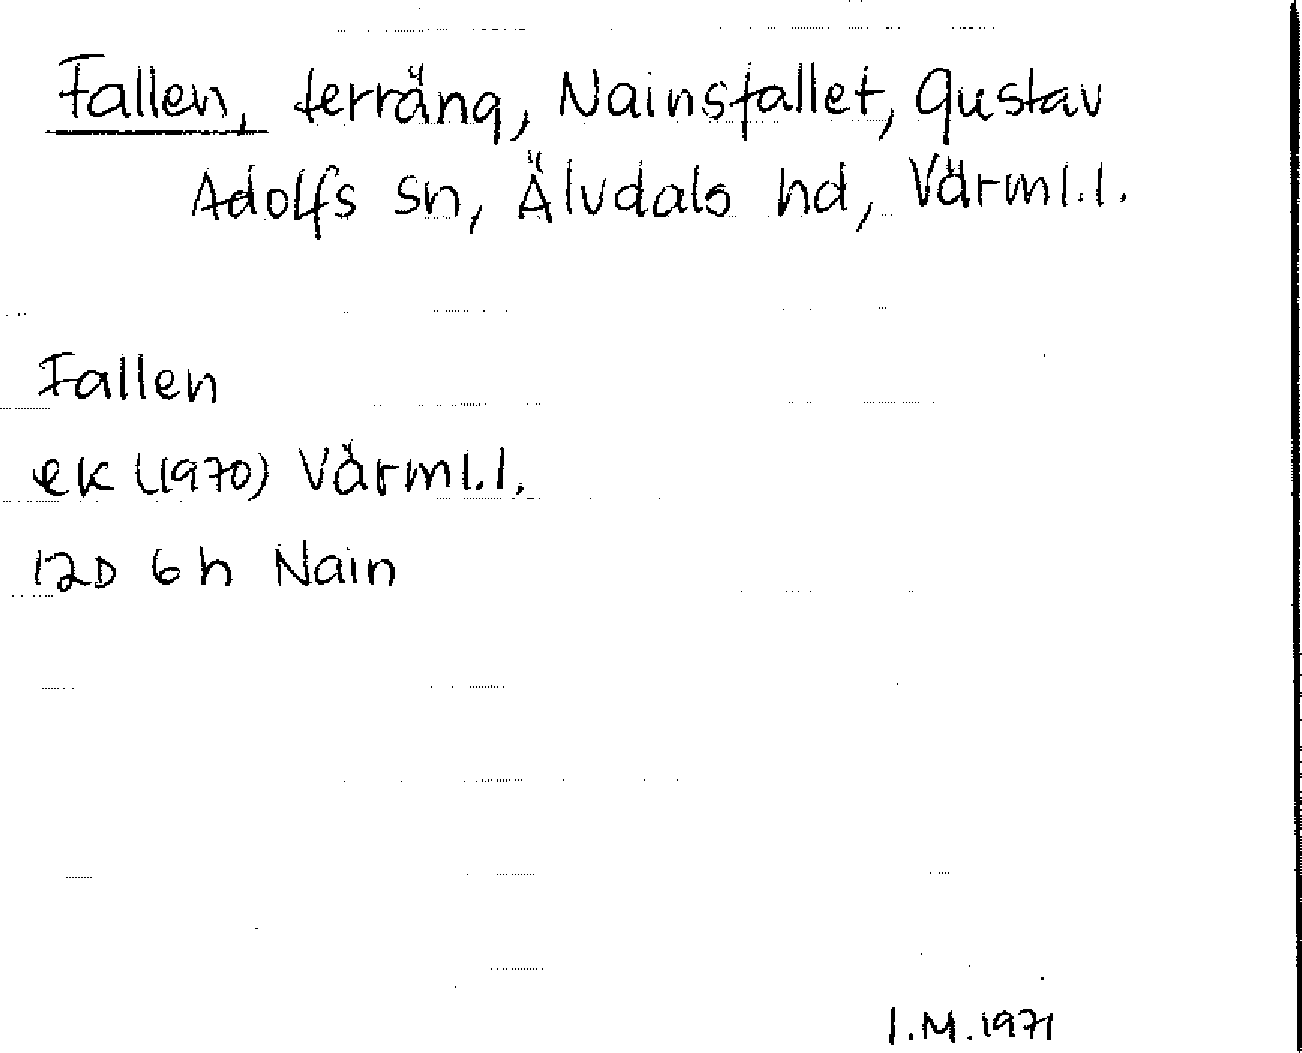 Fallen, terräng, Nainsfallet, Gustav
Adolfs sn, Älvdals hd, Värml.l.
Fallen
ek (1970) Värml.l.
12D 6h Nain
I.M.1971